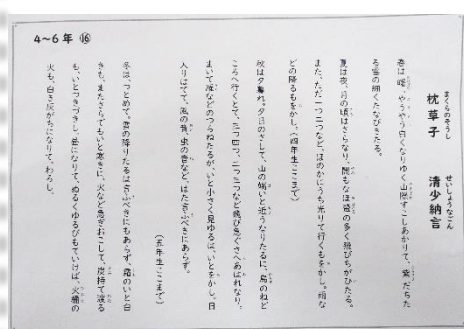 まくらのそうし せいしょうなごん
枕草子 清少納言
春は曙。やうやう白くなりゆく山際すこしあかりて、紫だちた
る雲の細くたなびきたる。
夏は夜。月の頃はさらなり、闇もなほ螢の多く飛びちがひたる。
また、ただ一つ二つなど、ほのかにうち光りて行くもをかし。雨な
どの降るもをかし。(四年生ここまで)
秋は夕暮れ。夕日のさして、山の端いと近うなりたるに、烏のねど
ころへ行くとて、三つ四つ、二つ三つなど飛び急ぐさへあはれなり。
まいて雁などのつらねたるが、いと小さく見ゆるは、いとをかし。日
入りはてて、風の音、虫の音など、はたいふべきにあらず。
(五年生ここまで)
冬は、つとめて。雪の降りたるはいふべきにもあらず。霜のいと白
きも、またさらでもいと寒きに、火など急ぎおこして、炭持て渡る
も、いとつきづきし。昼になりて、ぬるくゆるびもていけば、火桶の
火も、白き灰がちになりて、わろし。
4〜6年 ⑯